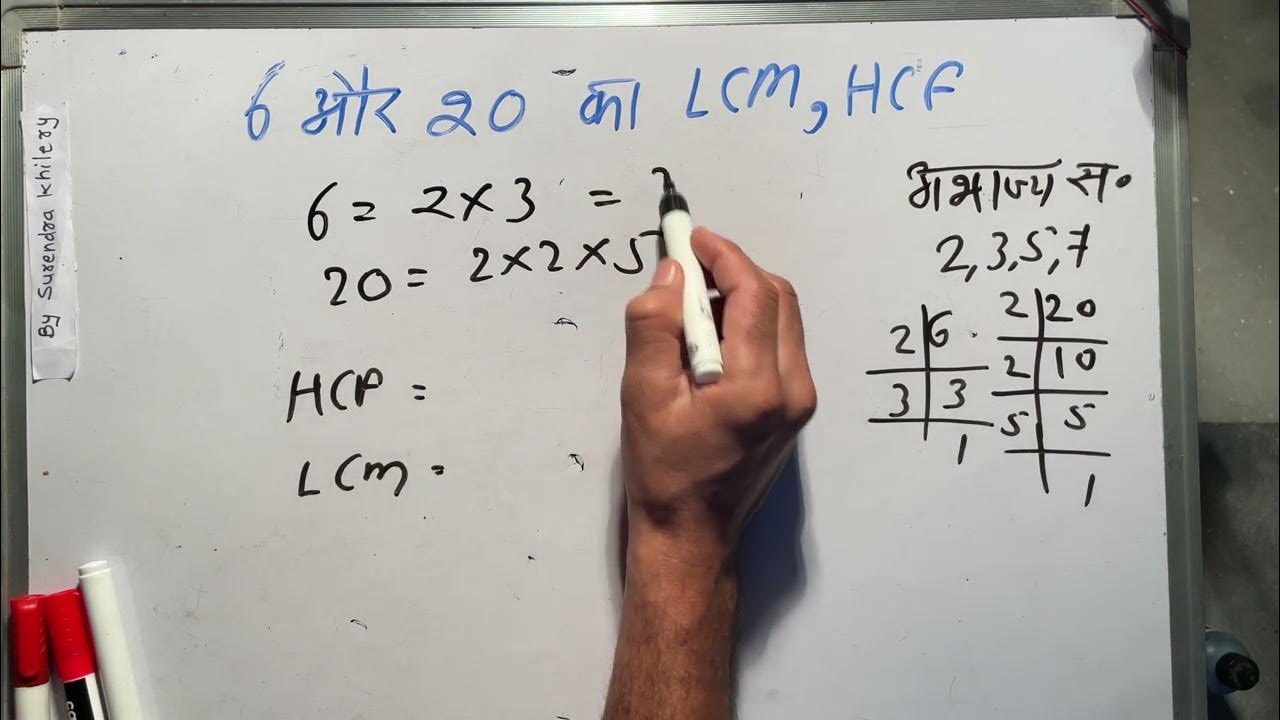 6 और 20 का LCM, HCF
6 = 2 × 3 =
20 = 2 × 2 × 5
HCF =
LCM =
अभाज्य स.
2, 3, 5, 7
2 6
3 3
1
2 20
2 10
5 5
1
By Surendra Khilery